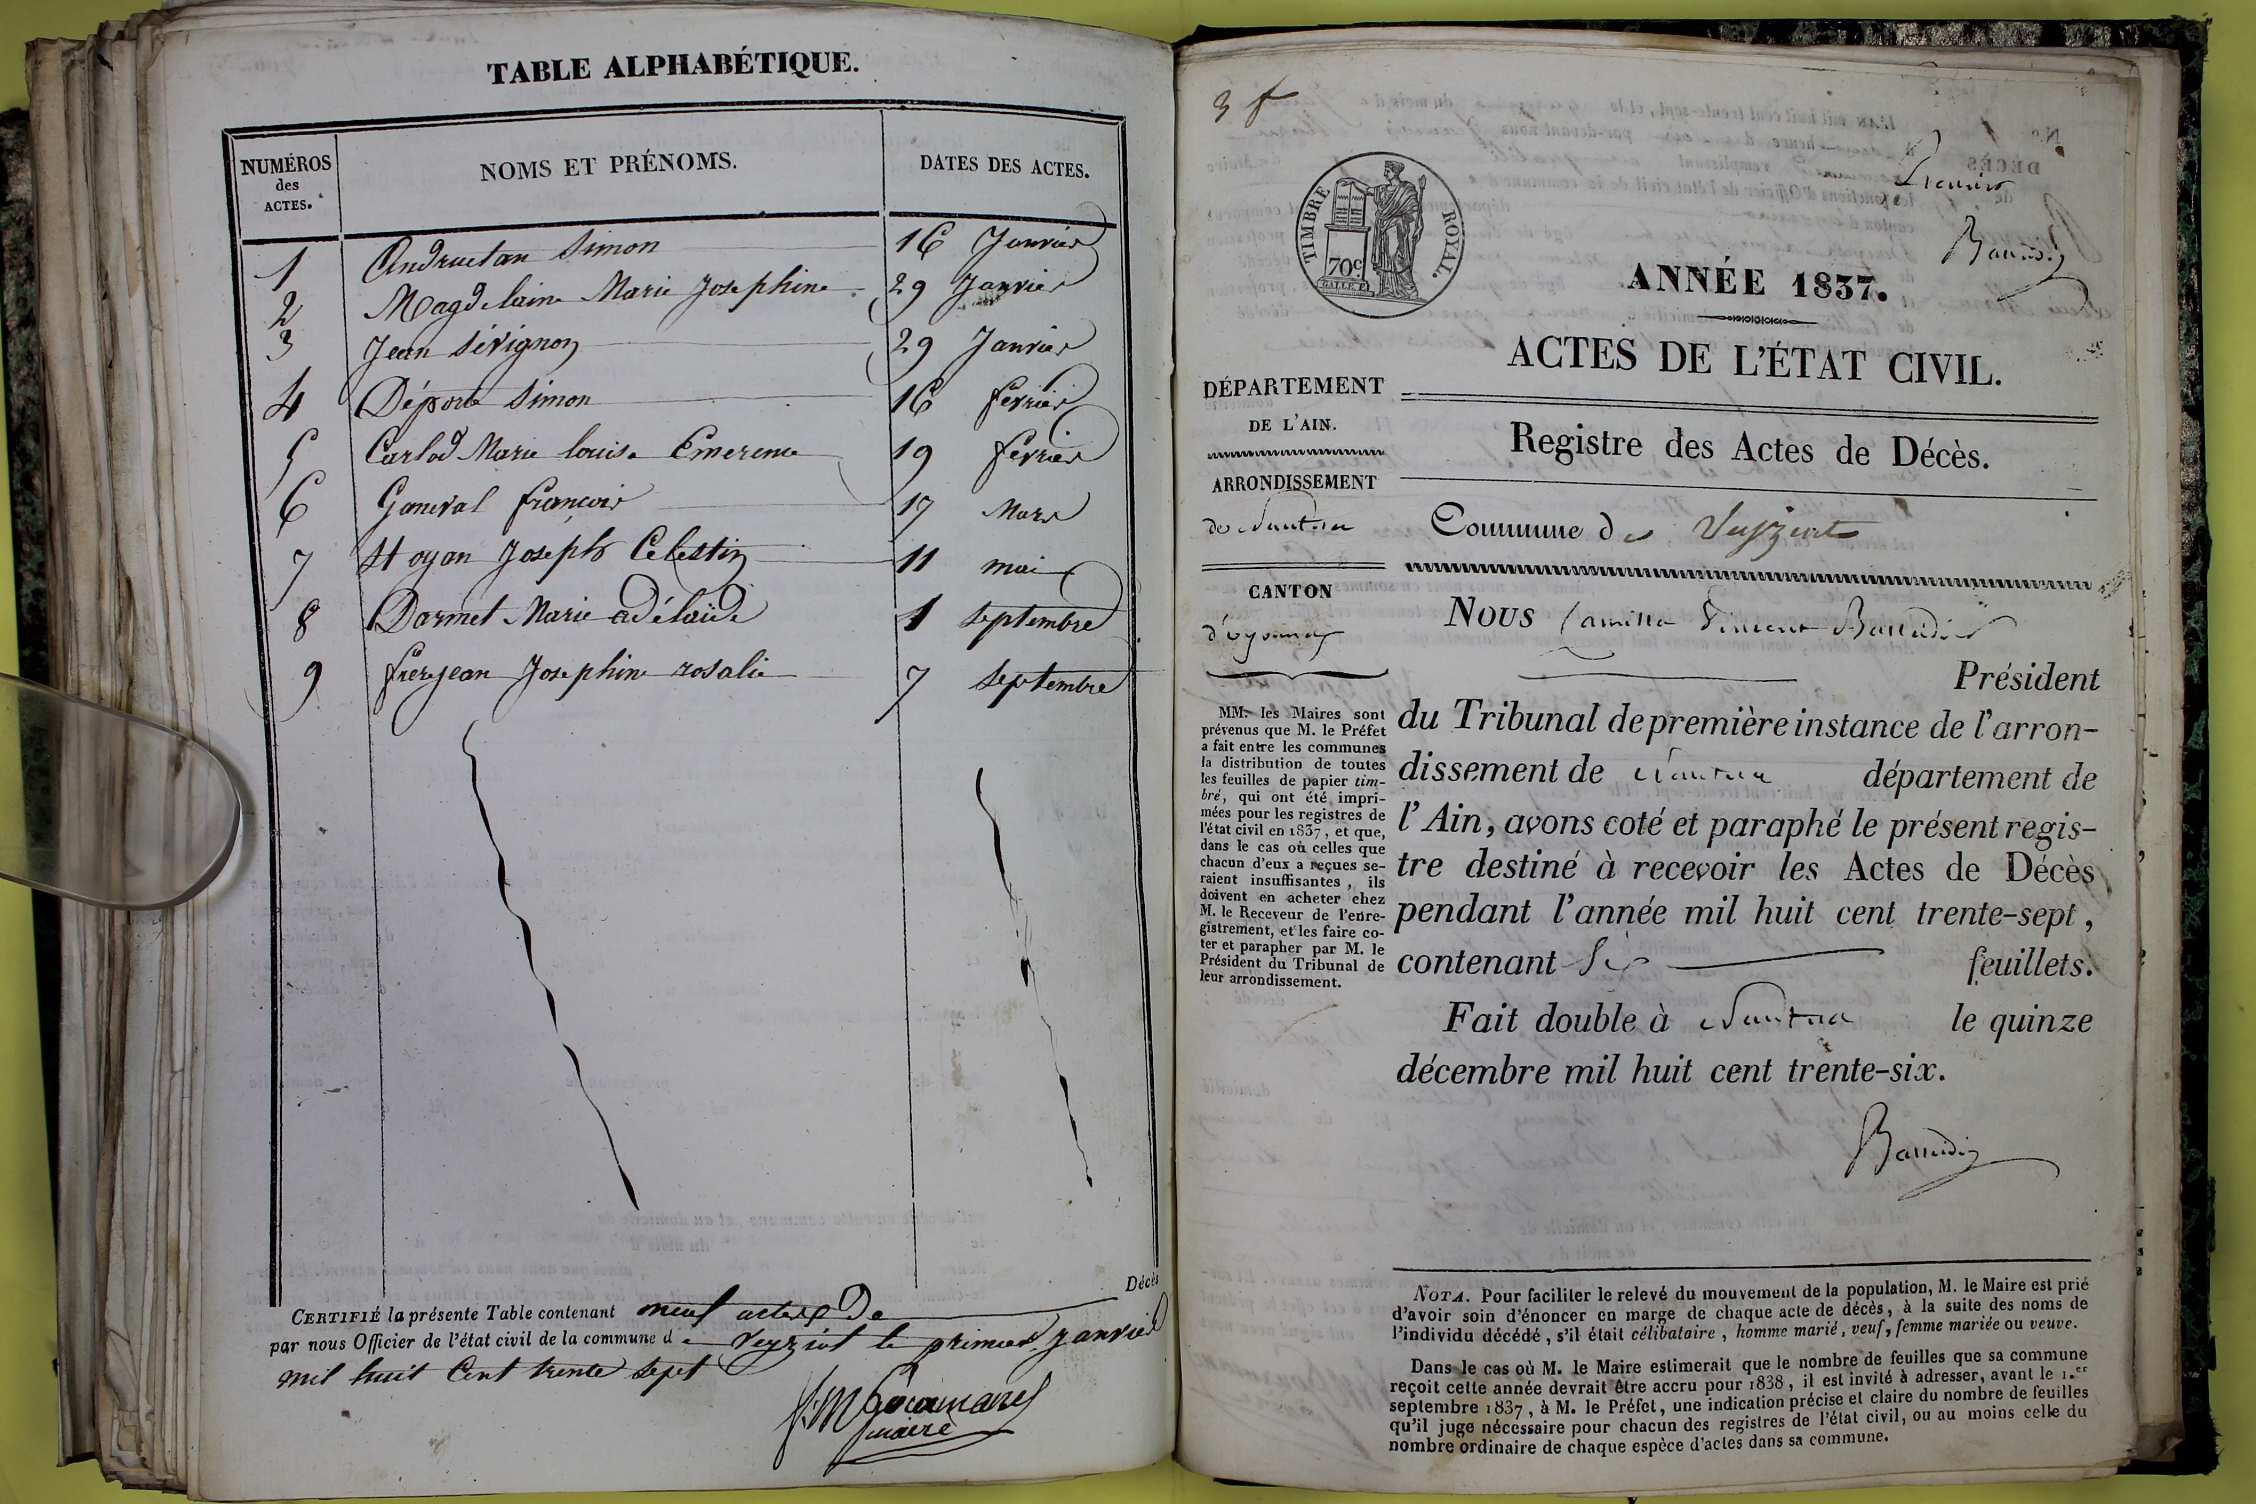 TABLE ALPHABÉTIQUE.
NUMÉROS
des
ACTES.
NOMS ET PRÉNOMS.
DATES DES ACTES.
1 Andruetan Simon 16 Janvier
2 Magdelaine Marie Josephine 29 Janvier
3 Jean Sévignon 29 Janvier
4 Déporte Simon 16 fevrier
5 Carlod Marie louise Emerence 19 fevrier
6 Ganeval françois 17 Mars
7 Hoyan Joseph Celestin 11 mai
8 Darmet Marie adélaïde 1 septembre
9 frerejean Josephine rosalie 7 septembre
CERTIFIÉ la présente Table contenant neuf actes De Décès
par nous Officier de l'état civil de la commune de veyziat le premier janvier
mil huit Cent trente sept
maire
3 f
Premier
TIMBRE ROYAL.
70c
GALLE F.
ANNÉE 1837.
ACTES DE L'ÉTAT CIVIL.
DÉPARTEMENT
DE L'AIN.
ARRONDISSEMENT
de Nantua
CANTON
d'oyonnax
Registre des Actes de Décès.
Commune de Veyziat
Nous Camille Vincent Baudin
Président
du Tribunal de première instance de l'arron-
dissement de Nantua département de
l'Ain, avons coté et paraphé le présent regis-
tre destiné à recevoir les Actes de Décès
pendant l'année mil huit cent trente-sept,
contenant Six feuillets.
Fait double à Nantua le quinze
décembre mil huit cent trente-six.
MM. les Maires sont
prévenus que M. le Préfet
a fait entre les communes
la distribution de toutes
les feuilles de papier tim-
bré, qui ont été impri-
mées pour les registres de
l'état civil en 1837, et que,
dans le cas où celles que
chacun d'eux a reçues se-
raient insuffisantes, ils
doivent en acheter chez
M. le Receveur de l'enre-
gistrement, et les faire co-
ter et parapher par M. le
Président du Tribunal de
leur arrondissement.
NOTA. Pour faciliter le relevé du mouvement de la population, M. le Maire est prié
d'avoir soin d'énoncer en marge de chaque acte de décès, à la suite des noms de
l'individu décédé, s'il était célibataire, homme marié, veuf, femme mariée ou veuve.
Dans le cas où M. le Maire estimerait que le nombre de feuilles que sa commune
reçoit cette année devrait être accru pour 1838, il est invité à adresser, avant le 1.er
septembre 1837, à M. le Préfet, une indication précise et claire du nombre de feuilles
qu'il juge nécessaire pour chacun des registres de l'état civil, ou au moins celle du
nombre ordinaire de chaque espèce d'actes dans sa commune.